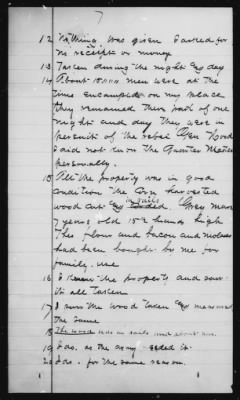 7
12 Nothing was given I asked for
no receipts or money
13 Taken during the night & day
14 About men were at the
time encamped on my place
they remained there part of one
night and day They were in
persuit of the rebel Gen Hood
I did not know the Quarter Master
personally.
15 All the property was in good
condition the Corn harvested
wood cut & in rails Grey Mare
7 years old 15 2 hands high
The flour and bacon and molasses
had been bought by me for
family use
16 I know the property and saw
it all taken
17 I saw the wood taken & measured
the same
18 The wood was in rails and about
19 I do. as the army needed it.
20 I do. for the same reason.